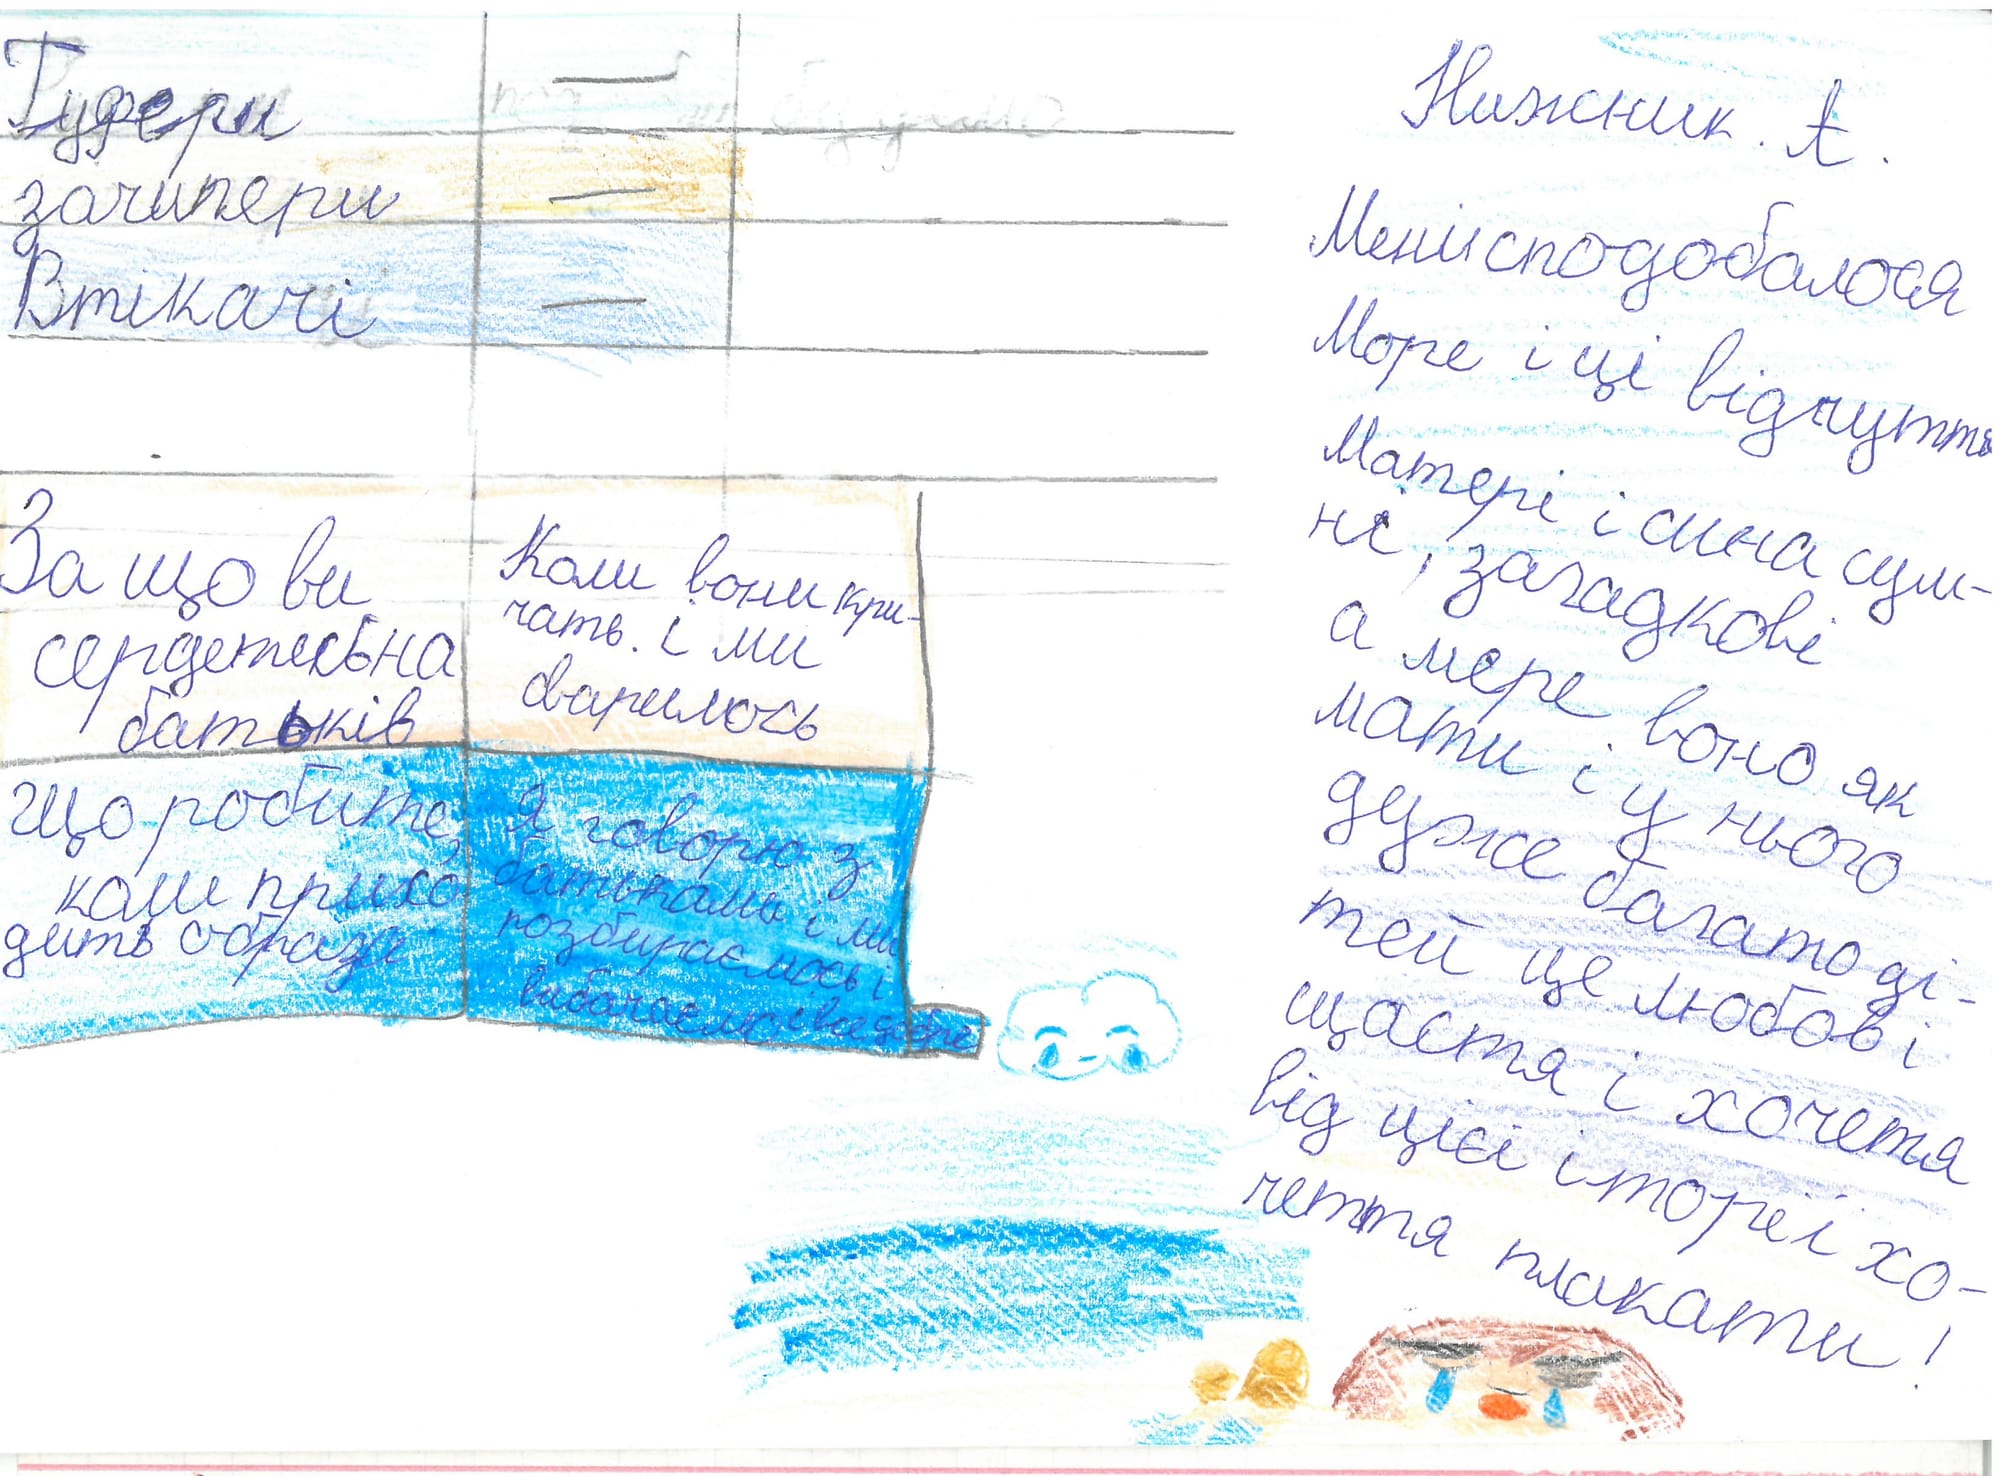 Руфери
зачипери
Втікачі
За що ви
сердетесь на
батьків
Коли вони кри-
чать. і ми
сварилось
Що робите,
коли прихо
дить образа
Я говорю з
батьками і ми
розбираємось і
вибачаємо і все добре
Нижник. А.
Мені сподобалося
Море і ці відчуття
Матері і сина сум-
ні, загадкові
а мере воно як
мати і у нього
дуже багато ді-
тей це любов і
щастя і хочетя
від цієї історії хо-
чеття плакати!